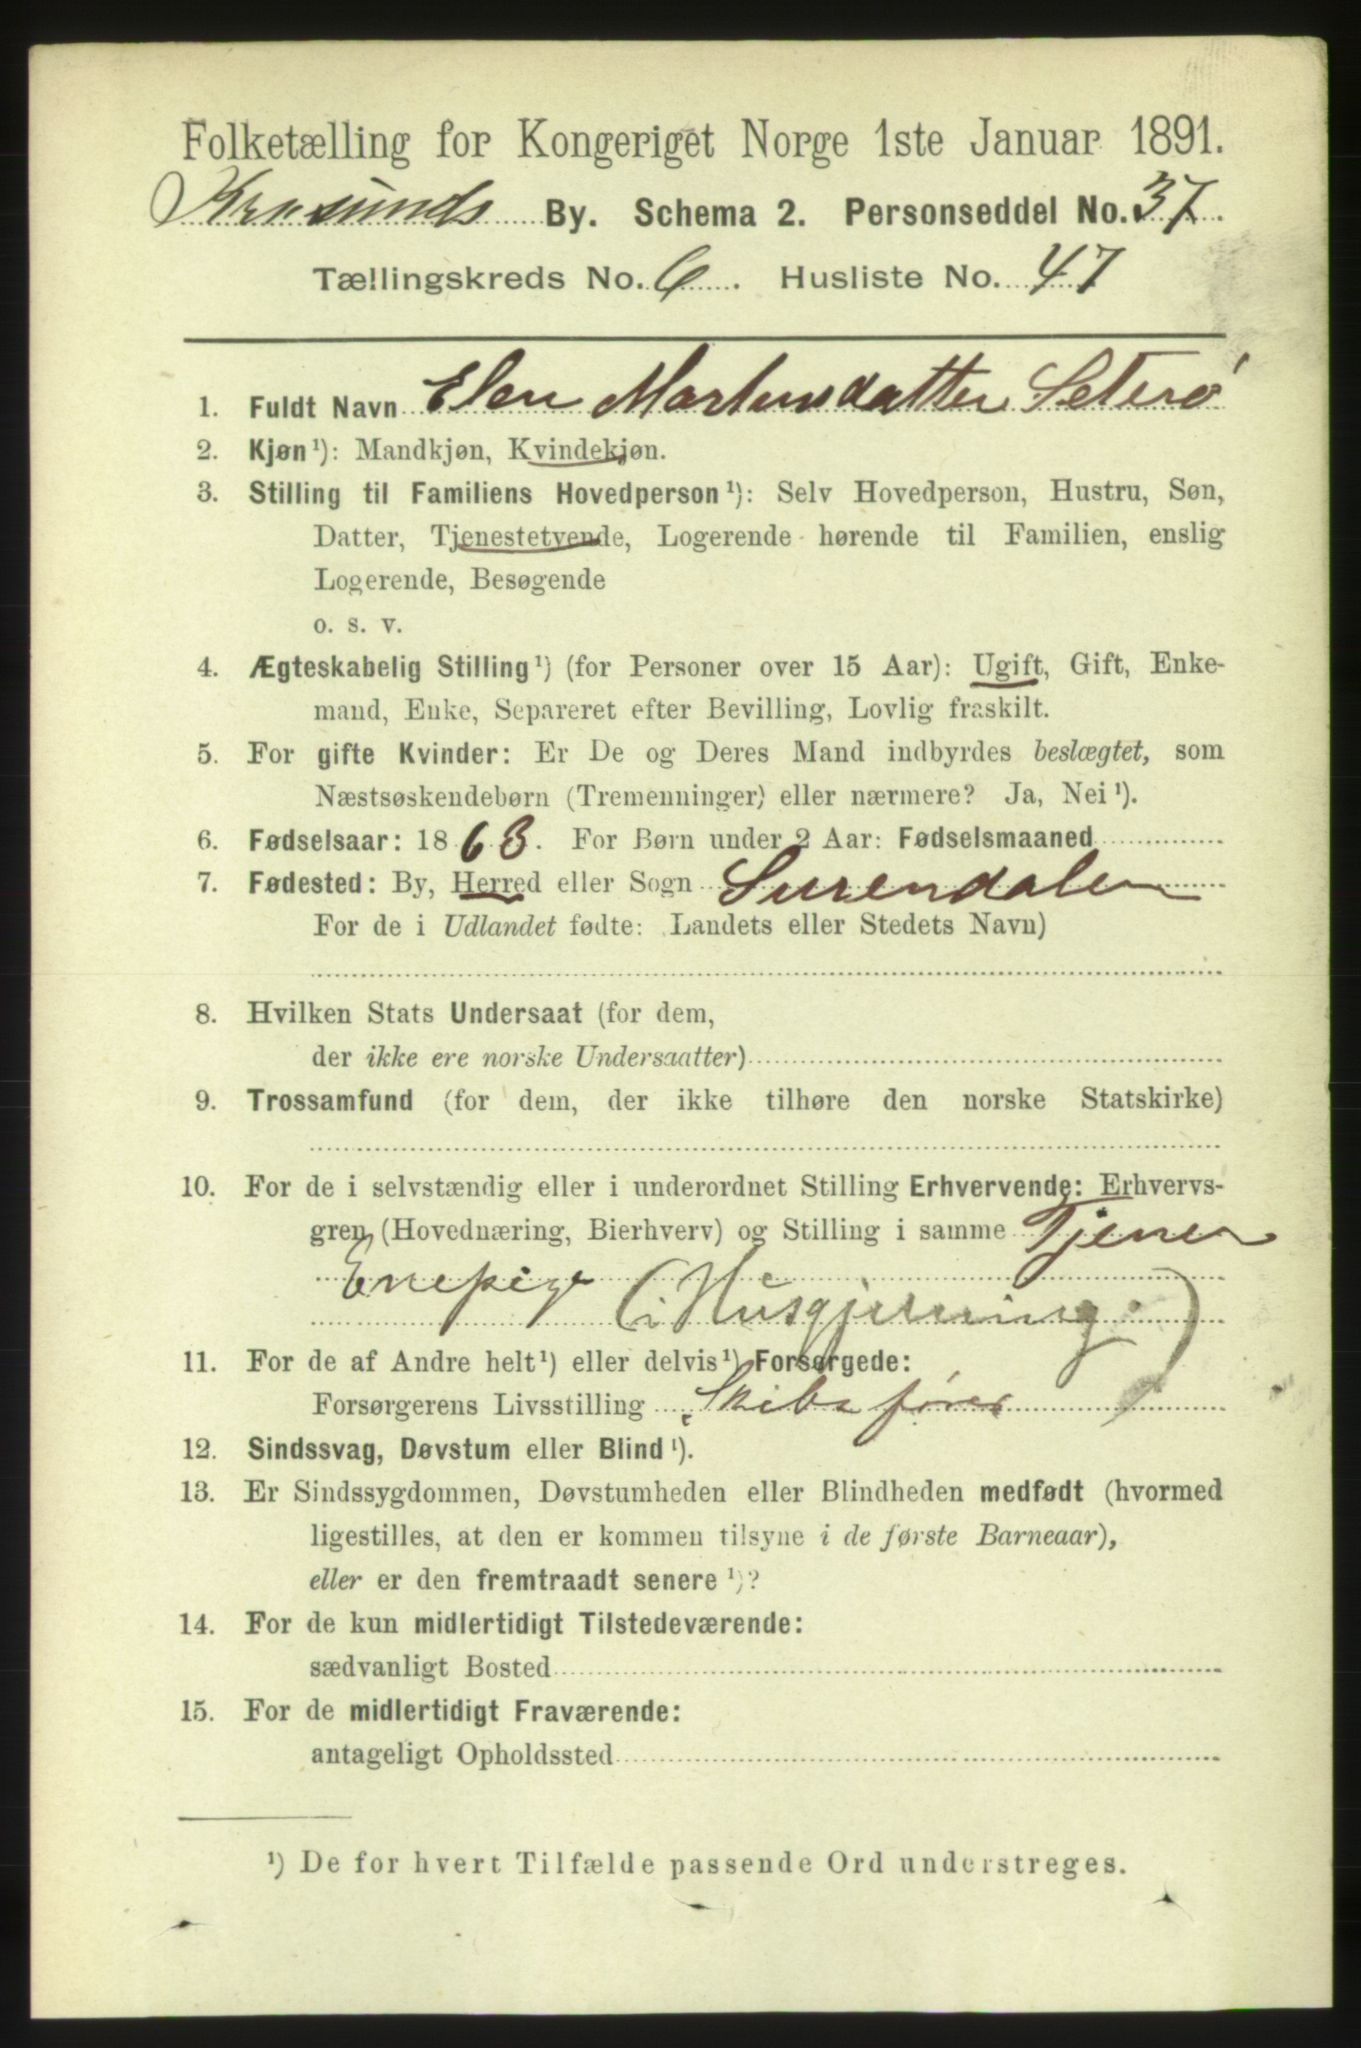 Folketælling for Kongeriget Norge 1ste Januar 1891.
Krasunds By. Schema 2. Personseddel No. 37.
Tællingskreds No. 6. Husliste No. 47
1. Fuldt Navn Elen MartinsdatterSeterø
2. Kjøn¹): Mandkjøn, Kvindekjøn.
3. Stilling til Familiens Hovedperson¹): Selv Hovedperson, Hustru, Søn,
Datter, Tjenestetyende, Logerende hørende til Familien, enslig
Logerende, Besøgende
o. s. v.
4. Ægteskabelig Stilling¹) (for Personer over 15 Aar): Ugift, Gift, Enke-
mand, Enke, Separeret efter Bevilling, Lovlig fraskilt.
5. For gifte Kvinder: Er De og Deres Mand indbyrdes beslægtet, som
Næstsøskendebørn (Tremenninger) eller nærmere? Ja, Nei¹).
6. Fødselsaar: 1863. For Børn under 2 Aar: Fødselsmaaned
7. Fødested: By, Herred eller Sogn Surendalen
For de i Udlandet fødte: Landets eller Stedets Navn)
8. Hvilken Stats Undersaat (for dem,
der ikke ere norske Undersaatter)
9. Trossamfund (for dem, der ikke tilhøre den norske Statskirke)
10. For de i selvstændig eller i underordnet Stilling Erhvervende: Erhvervs-
gren (Hovednæring, Bierhverv) og Stilling i samme Tjener
Enepige (i Husgjerning.)
11. For de af Andre helt¹) eller delvis¹) Forsørgede:
Forsørgerens Livsstilling Skibsfører
12. Sindssvag, Døvstum eller Blind¹).
13. Er Sindssygdommen, Døvstumheden eller Blindheden medfødt (hvormed
ligestilles, at den er kommen tilsyne i de første Barneaar),
eller er den fremtraadt senere¹)?
14. For de kun midlertidigt Tilstedeværende:
sædvanligt Bosted
15. For de midlertidigt Fraværende:
antageligt Opholdssted
¹) De for hvert Tilfælde passende Ord understreges.